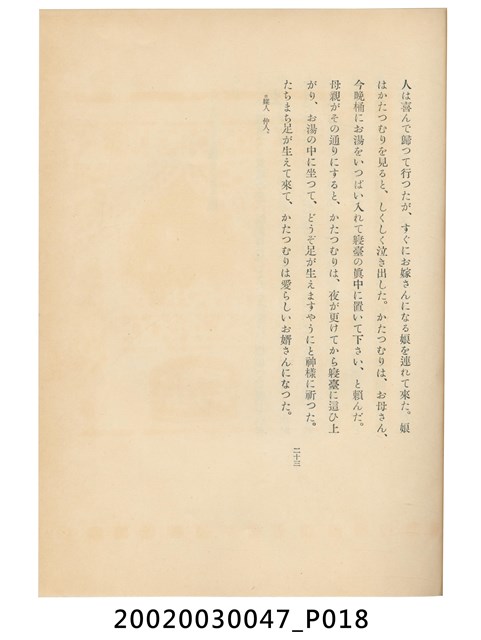 人は喜んで歸つて行つたが、すぐにお嫁さんになる娘を連れて來た。娘
はかたつむりを見ると、しくしく泣き出した。かたつむりは、お母さん、
今晩桶にお湯をいつぱい入れて寢臺の眞中に置いて下さい、と頼んだ。
母親がその通りにすると、かたつむりは、夜が更けてから寢臺に這ひ上
がり、お湯の中に坐つて、どうぞ足が生えますやうにと神樣に祈つた。
たちまち足が生えて來て、かたつむりは愛らしいお婿さんになつた。
仲人。
二十三
20020030047_P018